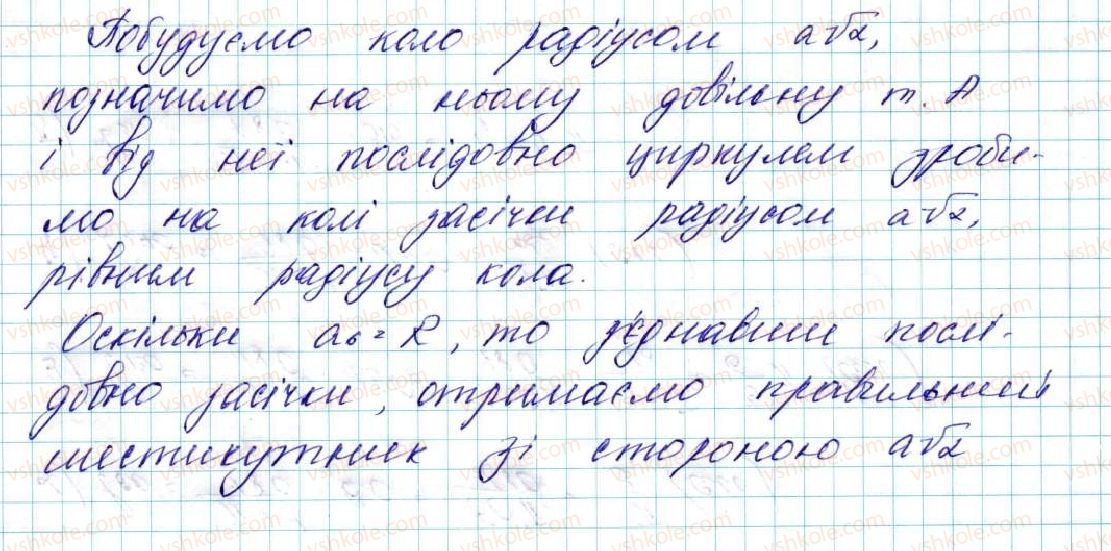 Побудуємо коло радіусом a√2,
позначимо на ньому довільну т. А
і від неї послідовно циркулем зроби-
мо на колі засічки радіусом a√2,
рівним радіусу кола.
Оскільки a₆ = R, то з'єднавши послі-
довно засічки, отримаємо правильний
шестикутник зі стороною a√2